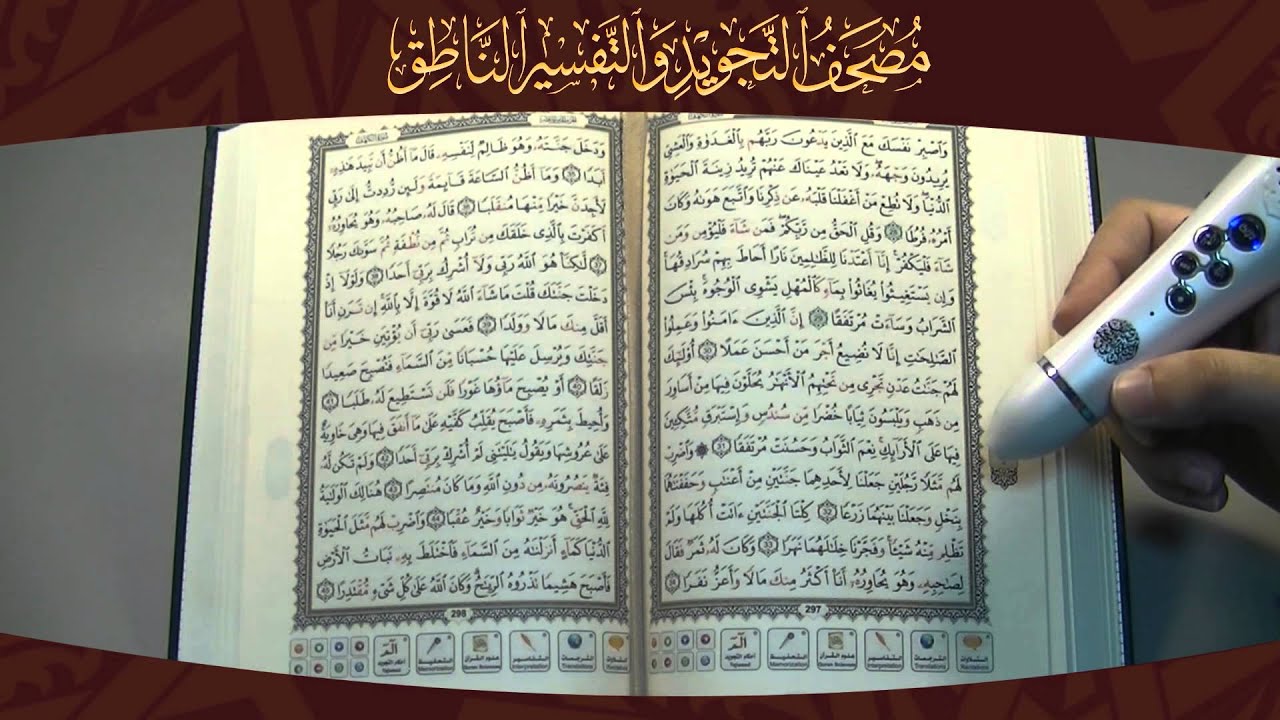 مُصْحَفُ التَّجْوِيدِ وَالتَّفْسِيرِ النَّاطِقِ
وَٱصْبِرْ نَفْسَكَ مَعَ ٱلَّذِينَ يَدْعُونَ رَبَّهُم بِٱلْغَدَوٰةِ وَٱلْعَشِىِّ
يُرِيدُونَ وَجْهَهُۥ وَلَا تَعْدُ عَيْنَاكَ عَنْهُمْ تُرِيدُ زِينَةَ ٱلْحَيَوٰةِ
ٱلدُّنْيَا وَلَا تُطِعْ مَنْ أَغْفَلْنَا قَلْبَهُۥ عَن ذِكْرِنَا وَٱتَّبَعَ هَوَىٰهُ وَكَانَ
أَمْرُهُۥ فُرُطًا ٢٨ وَقُلِ ٱلْحَقُّ مِن رَّبِّكُمْ فَمَن شَآءَ فَلْيُؤْمِن وَمَن
شَآءَ فَلْيَكْفُرْ إِنَّآ أَعْتَدْنَا لِلظَّٰلِمِينَ نَارًا أَحَاطَ بِهِمْ سُرَادِقُهَا
وَإِن يَسْتَغِيثُوا۟ يُغَاثُوا۟ بِمَآءٍ كَٱلْمُهْلِ يَشْوِى ٱلْوُجُوهَ بِئْسَ
ٱلشَّرَابُ وَسَآءَتْ مُرْتَفَقًا ٢٩ إِنَّ ٱلَّذِينَ ءَامَنُوا۟ وَعَمِلُوا۟
ٱلصَّٰلِحَٰتِ إِنَّا لَا نُضِيعُ أَجْرَ مَنْ أَحْسَنَ عَمَلًا ٣٠ أُو۟لَٰٓئِكَ
لَهُمْ جَنَّٰتُ عَدْنٍ تَجْرِى مِن تَحْتِهِمُ ٱلْأَنْهَٰرُ يُحَلَّوْنَ فِيهَا مِنْ أَسَاوِرَ
مِن ذَهَبٍ وَيَلْبَسُونَ ثِيَابًا خُضْرًا مِّن سُندُسٍ وَإِسْتَبْرَقٍ مُّتَّكِـِٔينَ
فِيهَا عَلَى ٱلْأَرَآئِكِ نِعْمَ ٱلثَّوَابُ وَحَسُنَتْ مُرْتَفَقًا ٣١ ۞ وَٱضْرِبْ
لَهُم مَّثَلًا رَّجُلَيْنِ جَعَلْنَا لِأَحَدِهِمَا جَنَّتَيْنِ مِنْ أَعْنَٰبٍ وَحَفَفْنَٰهُمَا
بِنَخْلٍ وَجَعَلْنَا بَيْنَهُمَا زَرْعًا ٣٢ كِلْتَا ٱلْجَنَّتَيْنِ ءَاتَتْ أُكُلَهَا وَلَمْ
تَظْلِم مِّنْهُ شَيْـًٔا وَفَجَّرْنَا خِلَٰلَهُمَا نَهَرًا ٣٣ وَكَانَ لَهُۥ ثَمَرٌ فَقَالَ
لِصَٰحِبِهِۦ وَهُوَ يُحَاوِرُهُۥٓ أَنَا۠ أَكْثَرُ مِنكَ مَالًا وَأَعَزُّ نَفَرًا ٣٤
297
وَدَخَلَ جَنَّتَهُۥ وَهُوَ ظَالِمٌ لِّنَفْسِهِۦ قَالَ مَآ أَظُنُّ أَن تَبِيدَ هَٰذِهِۦٓ
أَبَدًا ٣٥ وَمَآ أَظُنُّ ٱلسَّاعَةَ قَآئِمَةً وَلَئِن رُّدِدتُّ إِلَىٰ رَبِّى
لَأَجِدَنَّ خَيْرًا مِّنْهَا مُنقَلَبًا ٣٦ قَالَ لَهُۥ صَاحِبُهُۥ وَهُوَ يُحَاوِرُهُۥٓ
أَكَفَرْتَ بِٱلَّذِى خَلَقَكَ مِن تُرَابٍ ثُمَّ مِن نُّطْفَةٍ ثُمَّ سَوَّىٰكَ رَجُلًا
٣٧ لَّٰكِنَّا۠ هُوَ ٱللَّهُ رَبِّى وَلَآ أُشْرِكُ بِرَبِّىٓ أَحَدًا ٣٨ وَلَوْلَآ إِذْ
دَخَلْتَ جَنَّتَكَ قُلْتَ مَا شَآءَ ٱللَّهُ لَا قُوَّةَ إِلَّا بِٱللَّهِ إِن تَرَنِ أَنَا۠
أَقَلَّ مِنكَ مَالًا وَوَلَدًا ٣٩ فَعَسَىٰ رَبِّىٓ أَن يُؤْتِيَنِ خَيْرًا مِّن
جَنَّتِكَ وَيُرْسِلَ عَلَيْهَا حُسْبَانًا مِّنَ ٱلسَّمَآءِ فَتُصْبِحَ صَعِيدًا
زَلَقًا ٤٠ أَوْ يُصْبِحَ مَآؤُهَا غَوْرًا فَلَن تَسْتَطِيعَ لَهُۥ طَلَبًا ٤١
وَأُحِيطَ بِثَمَرِهِۦ فَأَصْبَحَ يُقَلِّبُ كَفَّيْهِ عَلَىٰ مَآ أَنفَقَ فِيهَا وَهِىَ خَاوِيَةٌ
عَلَىٰ عُرُوشِهَا وَيَقُولُ يَٰلَيْتَنِى لَمْ أُشْرِكْ بِرَبِّىٓ أَحَدًا ٤٢ وَلَمْ تَكُن لَّهُۥ
فِئَةٌ يَنصُرُونَهُۥ مِن دُونِ ٱللَّهِ وَمَا كَانَ مُنتَصِرًا ٤٣ هُنَالِكَ ٱلْوَلَٰيَةُ
لِلَّهِ ٱلْحَقِّ هُوَ خَيْرٌ ثَوَابًا وَخَيْرٌ عُقْبًا ٤٤ وَٱضْرِبْ لَهُم مَّثَلَ ٱلْحَيَوٰةِ
ٱلدُّنْيَا كَمَآءٍ أَنزَلْنَٰهُ مِنَ ٱلسَّمَآءِ فَٱخْتَلَطَ بِهِۦ نَبَاتُ ٱلْأَرْضِ
فَأَصْبَحَ هَشِيمًا تَذْرُوهُ ٱلرِّيَٰحُ وَكَانَ ٱللَّهُ عَلَىٰ كُلِّ شَىْءٍ مُّقْتَدِرًا ٤٥
298
التلاوات الترجمات التفاسير علوم القرآن التحفيظ الٓمٓ أحكام التجويد
Recitations Translations Interpretation Quran Sciences Memorization Tajweed
التلاوات الترجمات التفاسير علوم القرآن التحفيظ الٓمٓ أحكام التجويد
Recitations Translations Interpretation Quran Sciences Memorization Tajweed